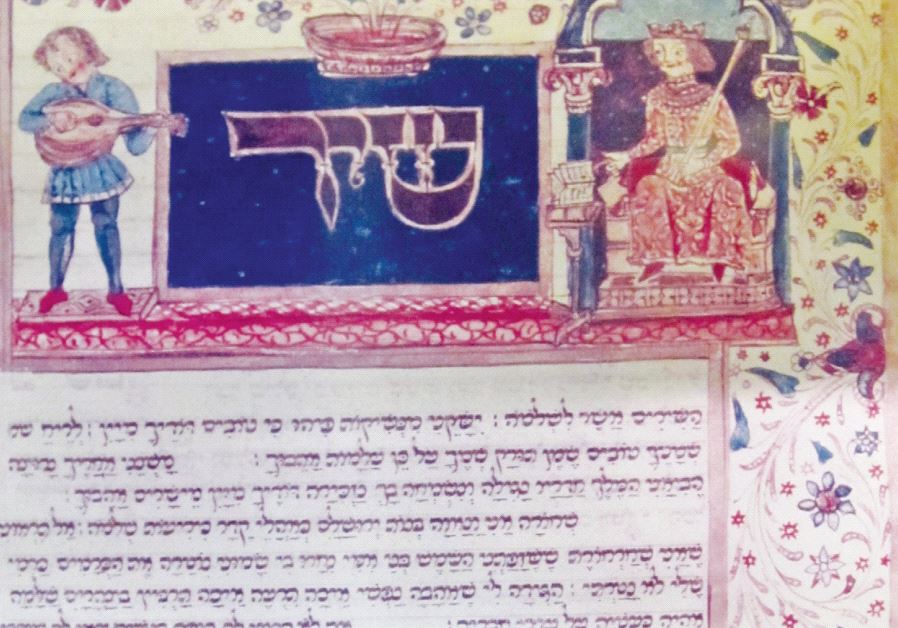 שיר
השירים אשר לשלמה : ישקני מנשיקות פיהו כי טובים דודיך מיין : לריח
שמניך טובים שמן תורק שמך על כן עלמות אהבוך : משכני אחריך נרוצה
הביאני המלך חדריו נגילה ונשמחה בך נזכירה דודיך מיין מישרים אהבוך :
שחורה אני ונאוה בנות ירושלם כאהלי קדר כיריעות שלמה : אל תראוני
שאני שחרחורת ששזפתני השמש בני אמי נחרו בי שמוני נטרה את הכרמים כרמי
שלי לא נטרתי : הגידה לי שאהבה נפשי איכה תרעה איכה תרביץ בצהרים שלמה
אהיה כעטיה על עדרי חבריך :